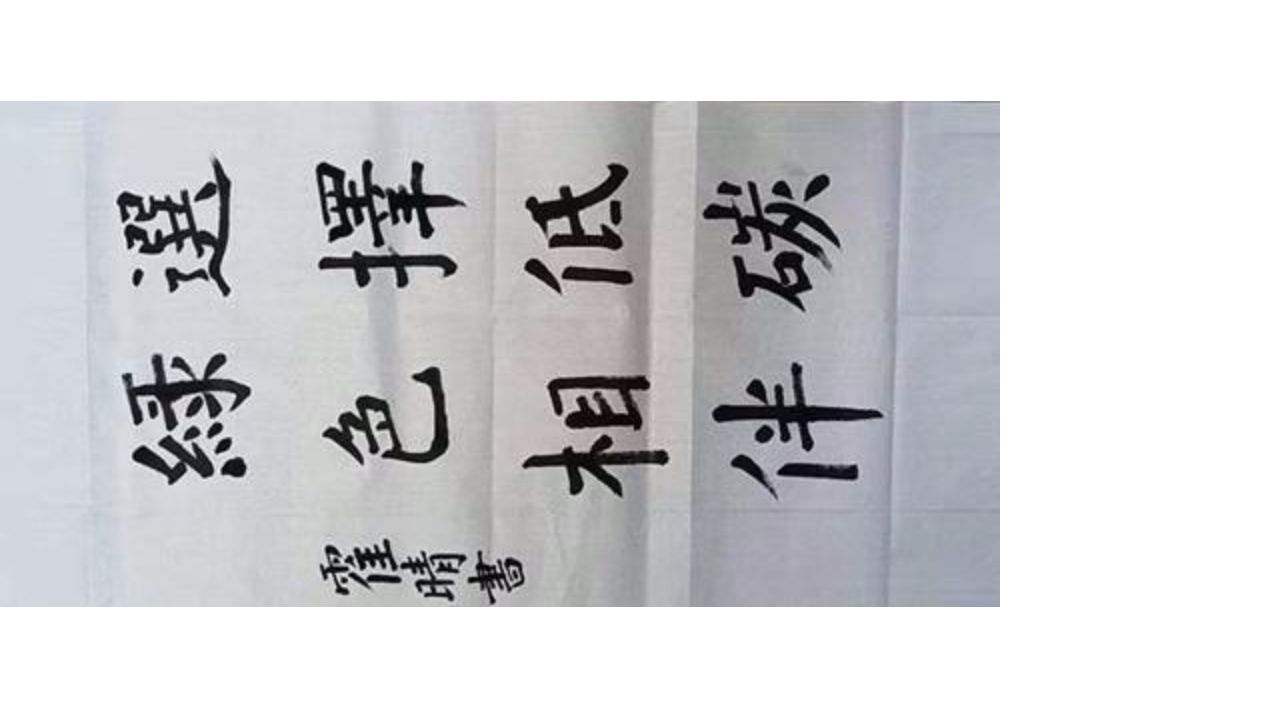 選擇低碳
綠色相伴
霍晴書